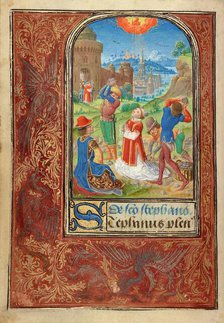 De sco stephano
Stephanus plen